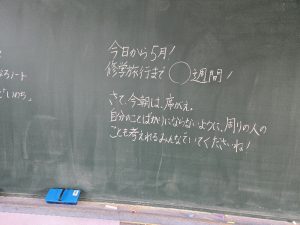 今日から5月!
修学旅行まで ◯週間!
さて、今朝は、席がえ。
自分のことばかりにならないように、周りの人の
ことも考えれるみんなでいてくださいね!
ノート